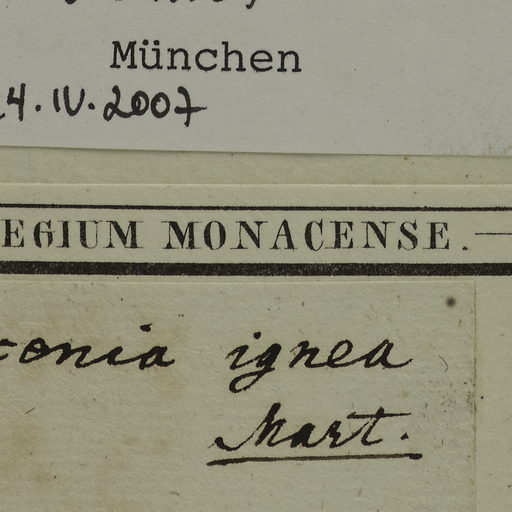 München
24.IV.2007
EGIUM MONACENSE.
tonia ignea
Mart.